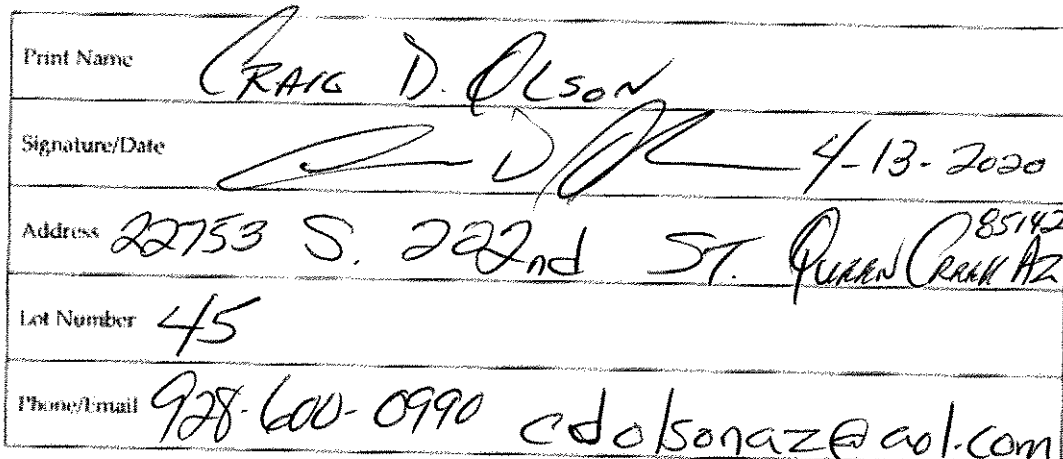 Print Name CRAIG D. OLSON
Signature/Date 4-13-2020
Address 22753 S. 222nd ST. QUEEN CREEK AZ 85142
Lot Number 45
Phone/Email 928-600-0990 cdolsonaz@aol.com